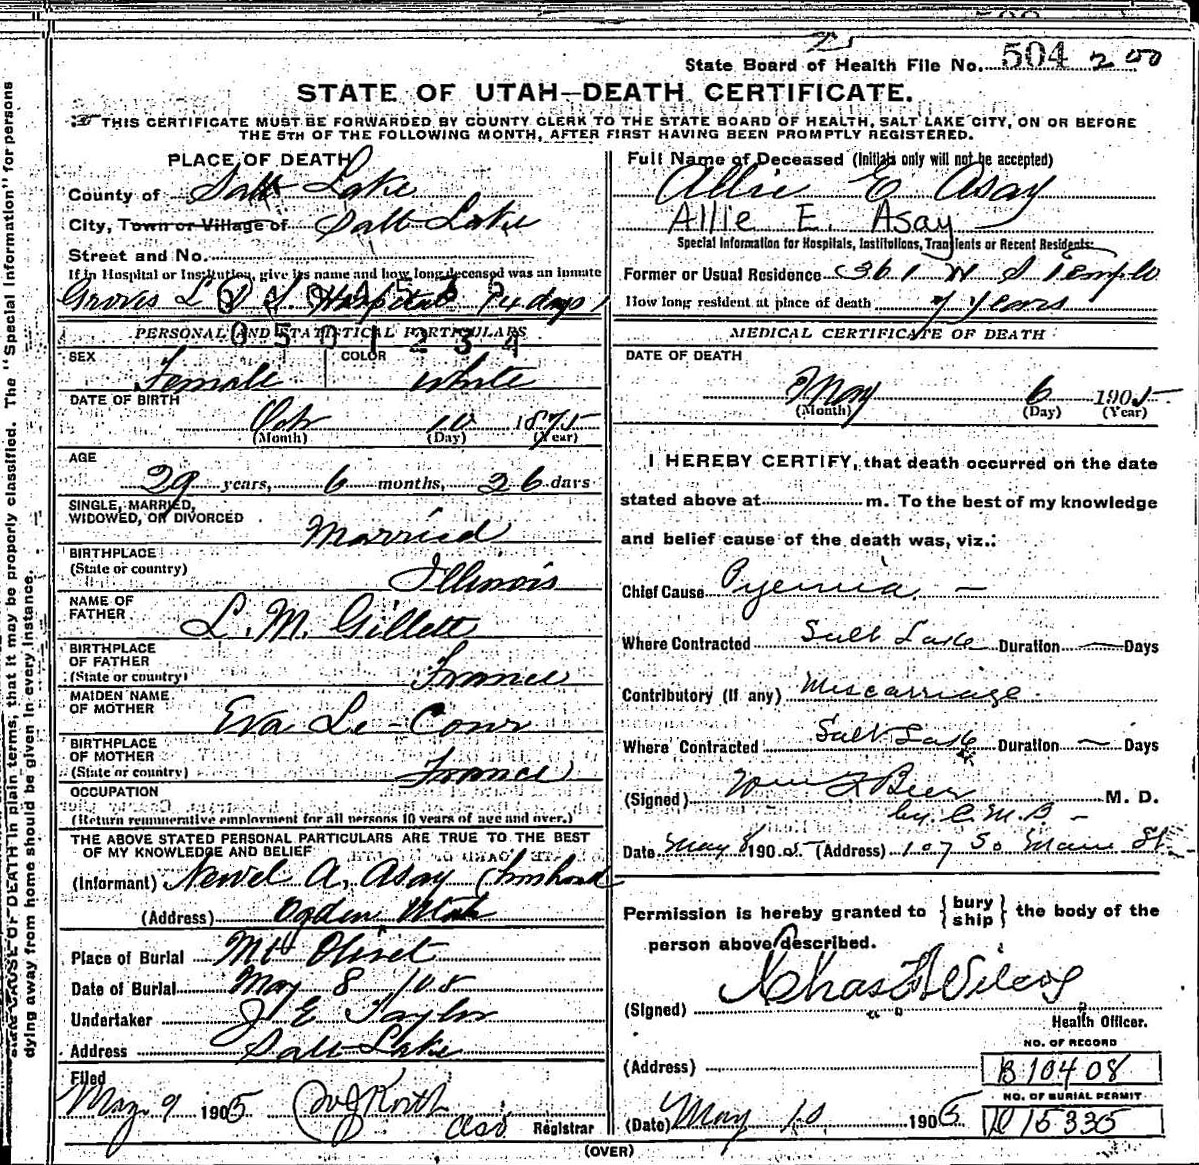 State Board of Health File No. 504 200
STATE OF UTAH—DEATH CERTIFICATE.
THIS CERTIFICATE MUST BE FORWARDED BY COUNTY CLERK TO THE STATE BOARD OF HEALTH, SALT LAKE CITY, ON OR BEFORE
THE 5TH OF THE FOLLOWING MONTH, AFTER FIRST HAVING BEEN PROMPTLY REGISTERED.
PLACE OF DEATH
County of Salt Lake
City, Town or Village of Salt Lake
Street and No.
If in Hospital or Institution, give its name and how long deceased was an inmate
Groves L D S Hospital 14 days
PERSONAL AND STATISTICAL PARTICULARS
0 5 0 1 2 3 4
SEX Female COLOR White
DATE OF BIRTH
Oct 10 1875
(Month) (Day) (Year)
AGE
29 years, 6 months, 26 days
SINGLE, MARRIED,
WIDOWED, OR DIVORCED Married
BIRTHPLACE
(State or country) Illinois
NAME OF
FATHER L. M. Gillett
BIRTHPLACE
OF FATHER
(State or country) France
MAIDEN NAME
OF MOTHER Eva Le-Conr
BIRTHPLACE
OF MOTHER
(State or country) France
OCCUPATION
(Return remunerative employment for all persons 10 years of age and over.)
THE ABOVE STATED PERSONAL PARTICULARS ARE TRUE TO THE BEST
OF MY KNOWLEDGE AND BELIEF
(Informant) Newel A. Asay (husband
(Address) Ogden Utah
Place of Burial Mt Olivet
Date of Burial May 8 105
Undertaker J E Taylor
Address Salt Lake
Filed
May 9 1905
Asst Registrar
Full Name of Deceased (Initials only will not be accepted)
Allie E Asay
Allie E. Asay
Special Information for Hospitals, Institutions, Transients or Recent Residents:
Former or Usual Residence 361 W S Temple
How long resident at place of death 7 years
MEDICAL CERTIFICATE OF DEATH
DATE OF DEATH
May 6 1905
(Month) (Day) (Year)
I HEREBY CERTIFY, that death occurred on the date
stated above at m. To the best of my knowledge
and belief cause of the death was, viz.:
Chief Cause Pyemia —
Where Contracted Salt Lake Duration — Days
Contributory (If any) Miscarriage
Where Contracted Salt Lake Duration — Days
(Signed) Wm F Beer M. D.
by C. M. B —
Date May 8 1905 (Address) 107 So Main St.
Permission is hereby granted to {bury ship} the body of the
person above described.
(Signed) Chas F Wilcox
Health Officer.
(Address)
NO. OF RECORD
B 10408
NO. OF BURIAL PERMIT
D 15335
(Date) May 10 1905
(OVER)
CAUSE OF DEATH in plain terms, that it may be properly classified. The "Special Information" for persons
dying away from home should be given in every instance.